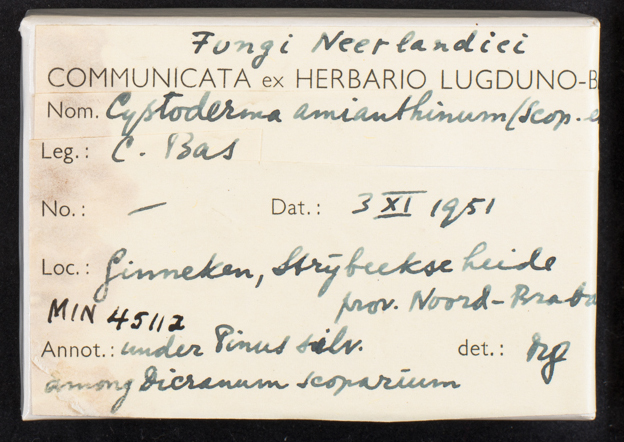 Fungi Neerlandici
COMMUNICATA ex HERBARIO LUGDUNO-B
Nom. Cystoderma amianthinum (Scop. e
Leg.: C. Bas
No.: — Dat.: 3 XI 1951
Loc.: Ginneken, Strijbeekse heide
prov. Noord-Braba
MIN 45112
Annot.: under Pinus silv. det.:
among Dicranum scoparium